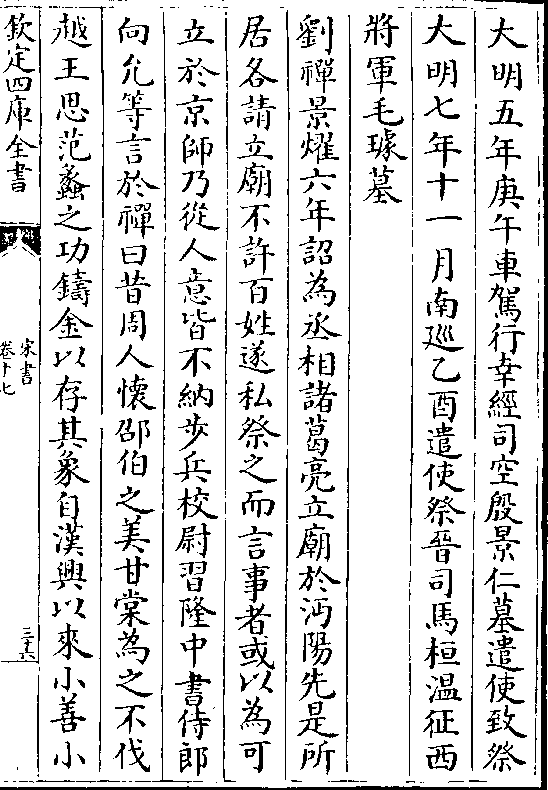 大明五年庚午車駕行幸經司空殷景仁墓遣使致祭
大明七年十一月南廵乙酉遣使祭晉司馬桓温征西
將軍毛璩墓
劉禪景燿六年詔為丞相諸葛亮立廟於沔陽先是所
居各請立廟不許百姓遂私祭之而言事者或以為可
立於京師乃從人意皆不納步兵校尉習隆中書侍郎
向允等言於禪曰昔周人懷邵伯之美甘棠為之不伐
越王思范蠡之功鑄金以存其象自漢興以來小善小
欽定四庫全書
宋書
卷十七
三十六